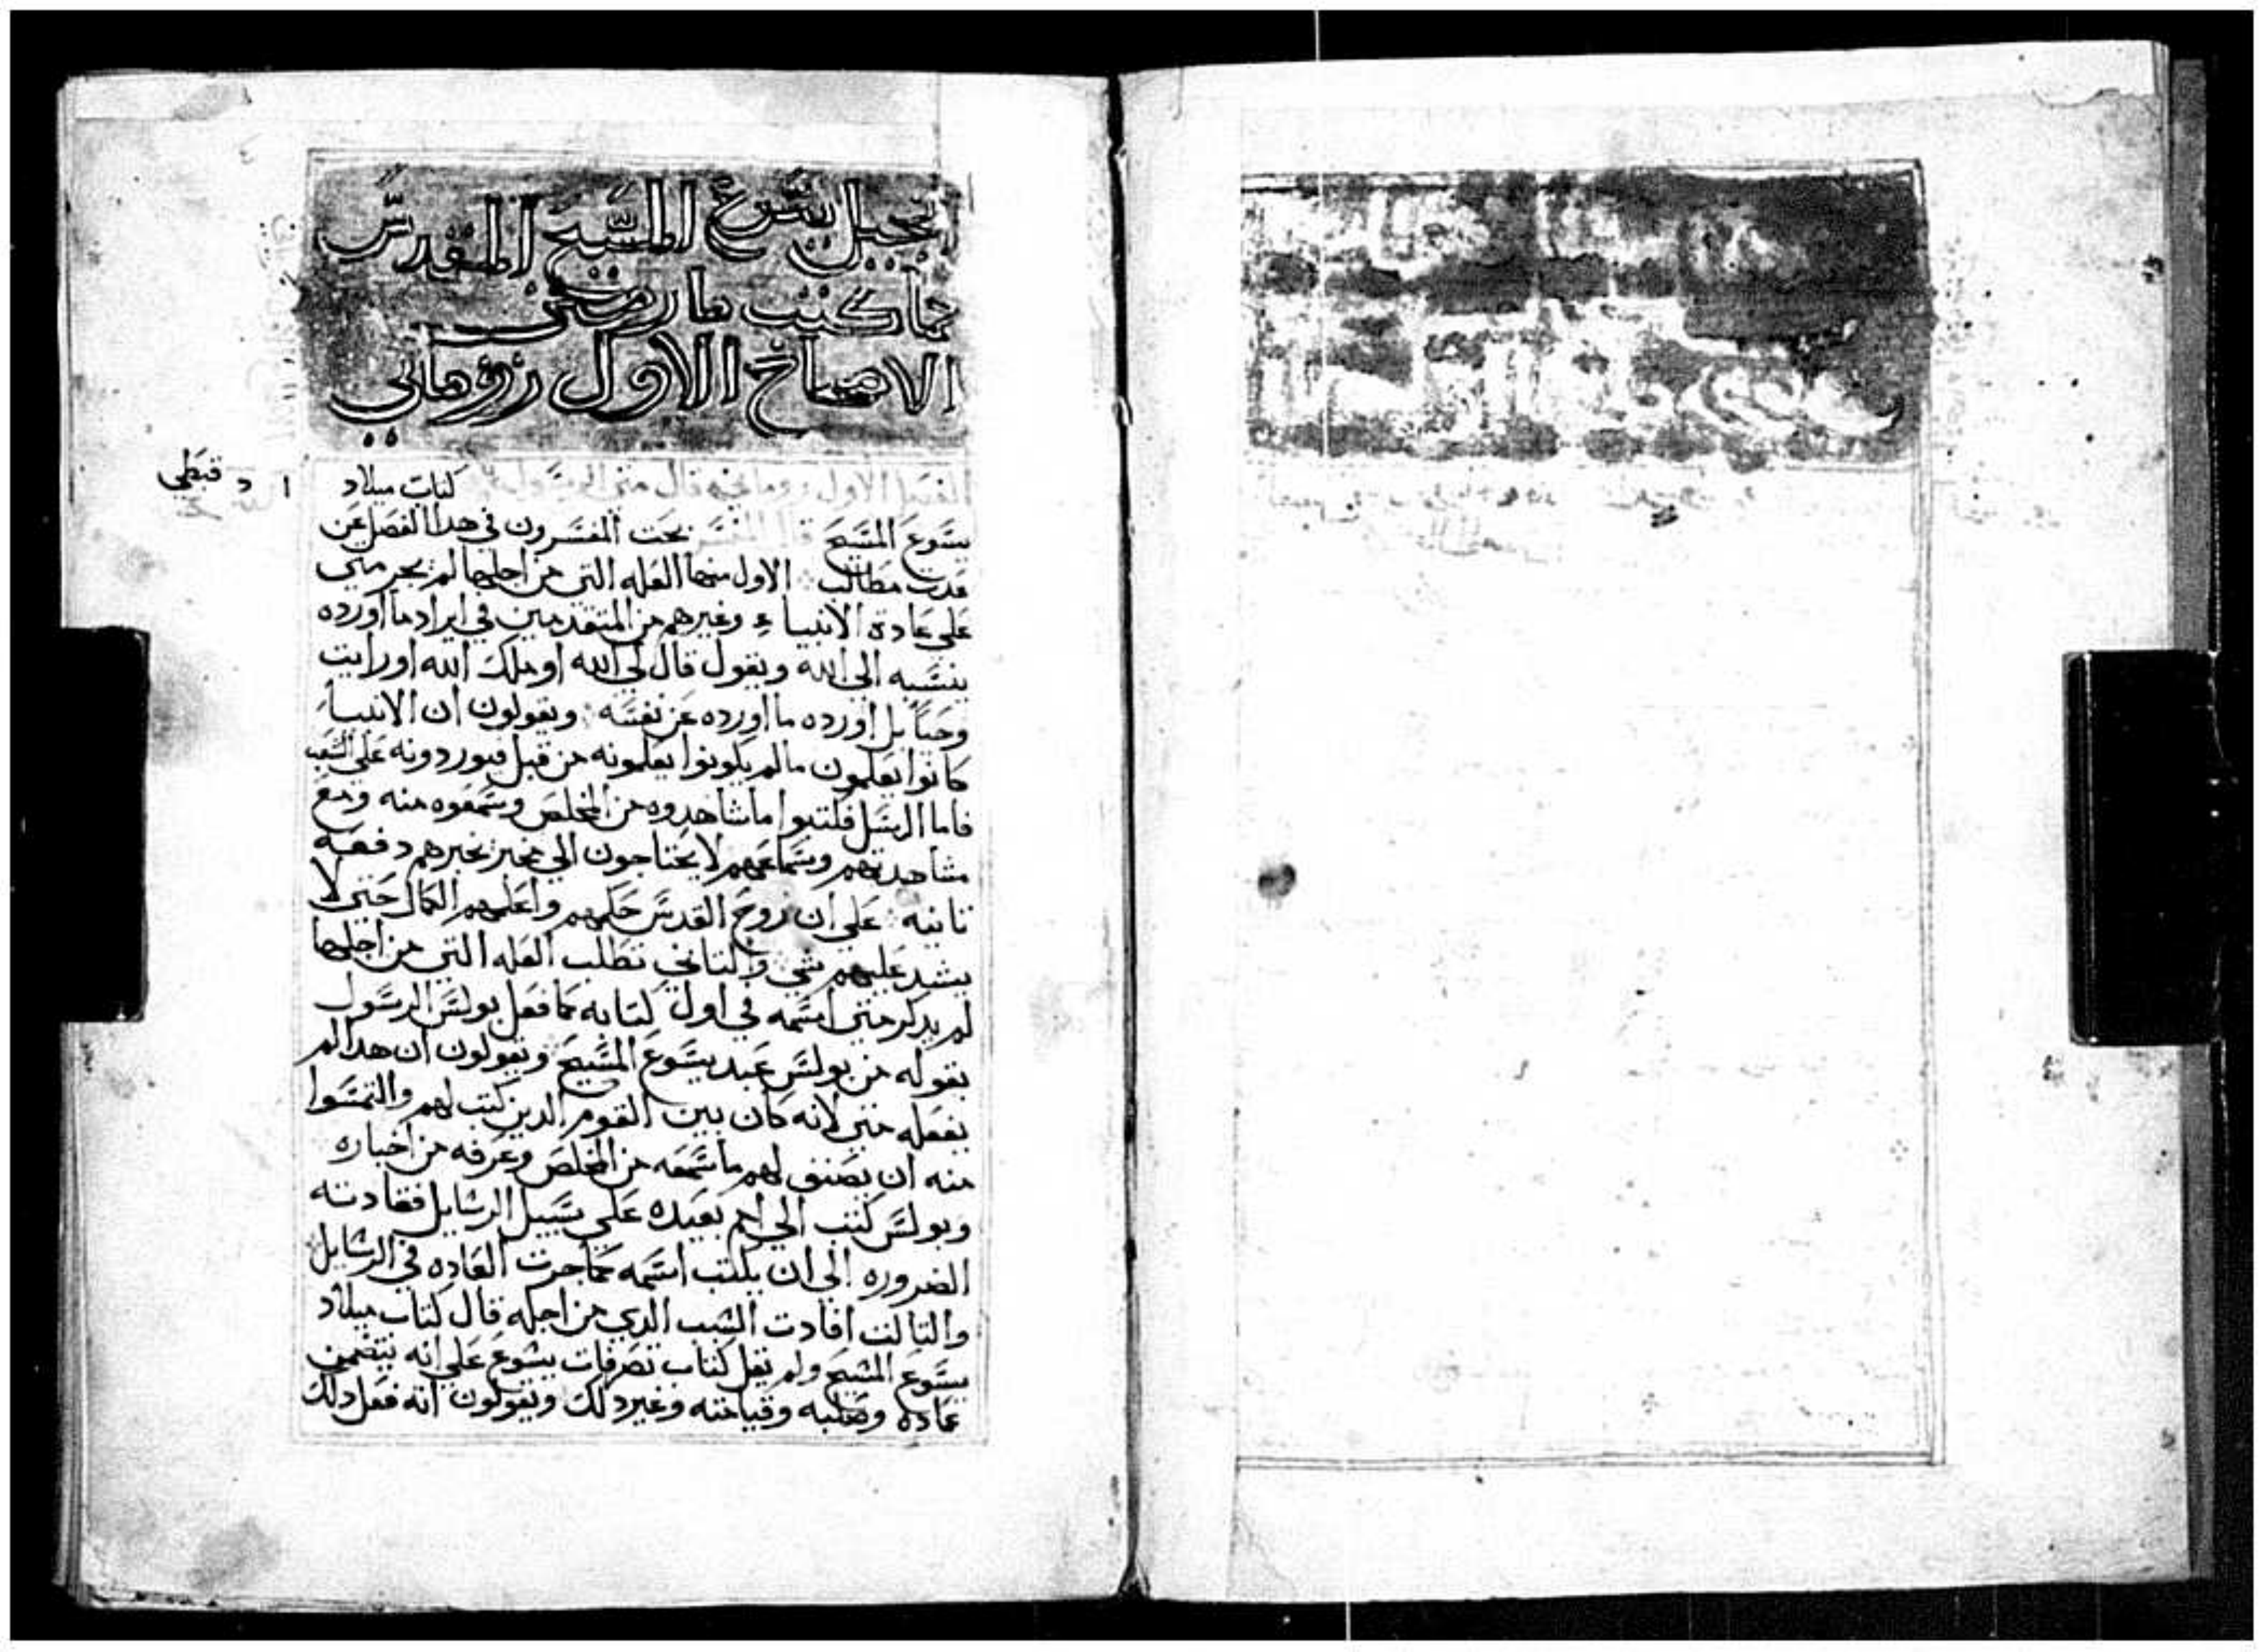 انجيل يسوع المسيح المقدس
كما كتب مار متى
الاصحاح الاول روماني
الفصل الاول روماني قال متي الرسول كتاب ميلاد
ا د قبطي
يسوع المسيح قال المفسر بحت المفسرون في هدا الفصل عن
عدت مطالب الاول منها العله التي من اجلها لم يجر متي
علي عادة الانبياء وغيرهم من المتقدمين في ايراد ما اورده
ينسبه الي الله ويقول قال لي الله او ملك الله او رايت
وحيا بل اورده ما اورده عن نفسه ويقولون ان الانبياء
كانوا يعلمون مالم يكونوا يعلمونه من قبل فيوردونه علي الشعب
فاما الرسل فكتبوا ما شاهدوه من المخلص وسمعوه منه ومع
مشاهدتهم وسماعهم لا يحتاجون الي مخبر يخبرهم دفعه
تانيه علي ان روح القدس حكمهم واعلمهم الكمال حتي لا
يشد عليهم شي والتاني نطلب العله التي من اجلها
لم يدكر متي اسمه في اول كتابه كما فعل بولس الرسول
بقوله من بولس عبد يسوع المسيح ويقولون ان هدا لم
يفعله متي لانه كان بين القوم الدين كتب لهم والتمسوا
منه ان يصنف لهم ما سمعه من المخلص وعرفه من اخباره
وبولس كتب الي امم بعيده علي سبيل الرسايل فقادته
الضروره الي ان يكتب اسمه كما جرت العاده في الرسايل
والتالت افادت السبب الدي من اجله قال كتاب ميلاد
يسوع المسيح ولم يقل كتاب تصرفات يسوع علي انه يتضمن
عماده وصلبه وقيامته وغير دلك ويقولون انه فعل دلك